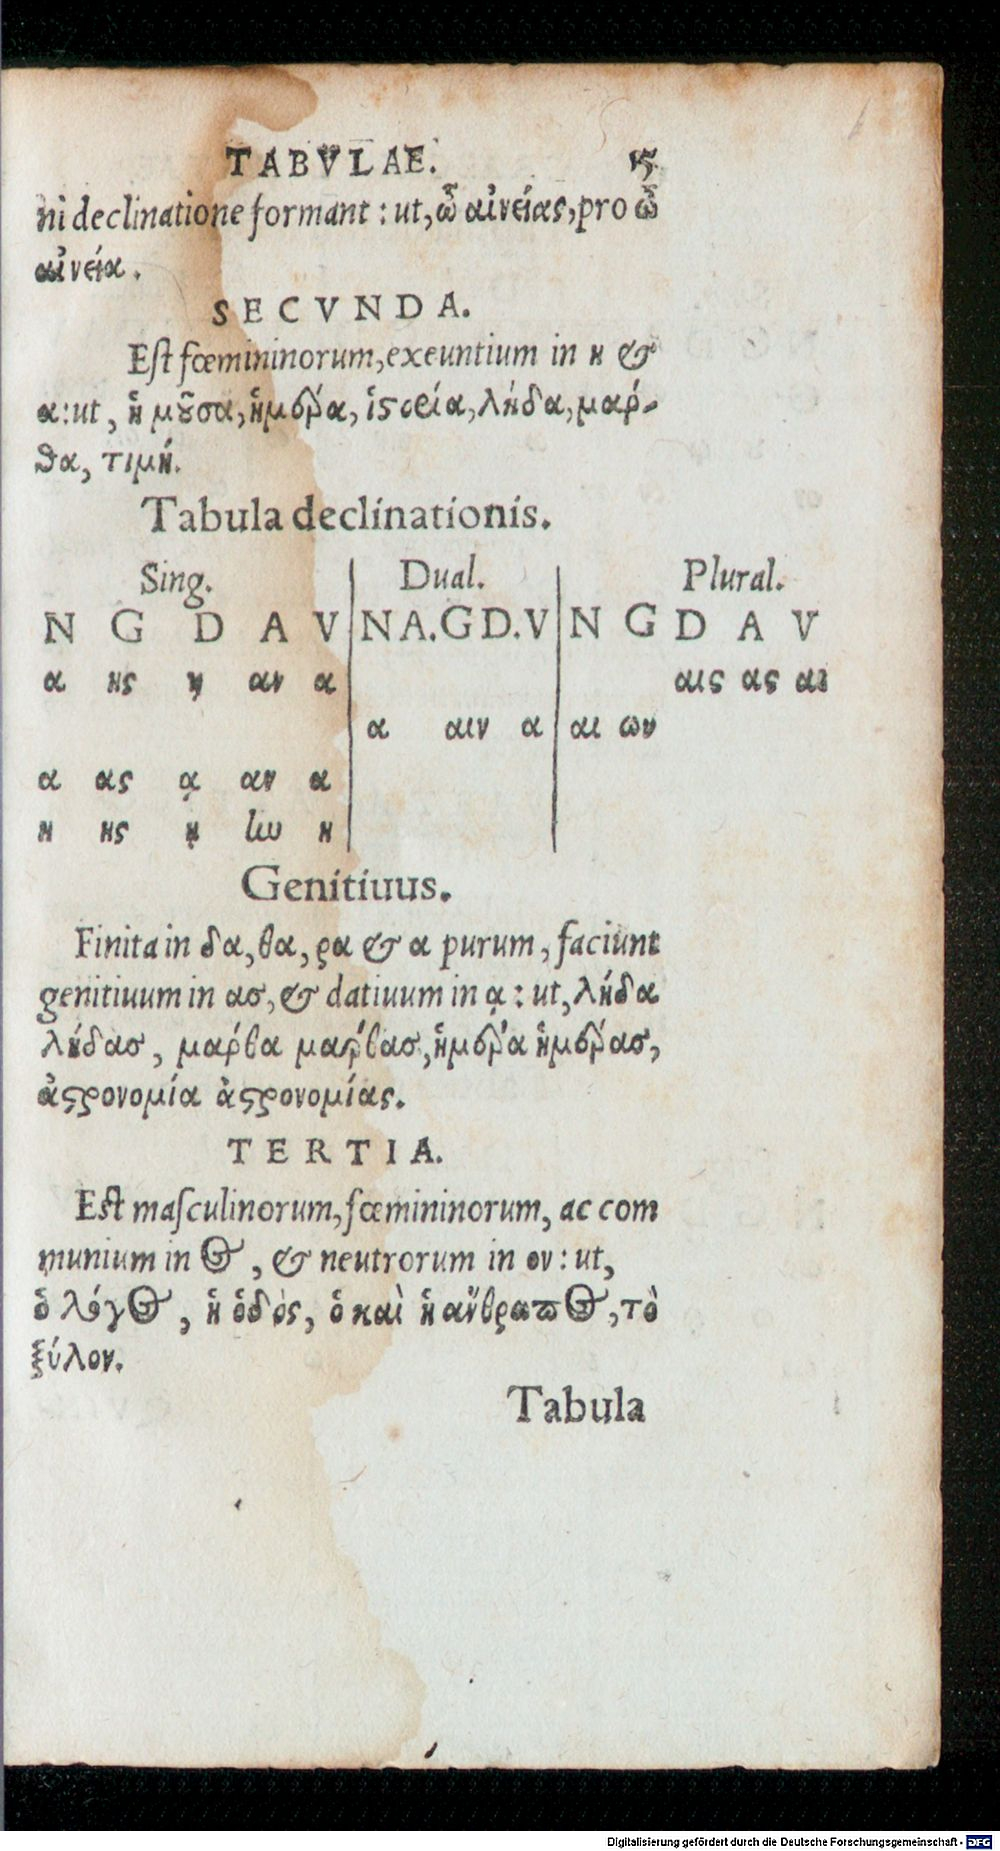 TABVLAE. 15
ni declinatione formant : ut, ὦ αἰνείας, pro ὦ
αἰνεία.
SECVNDA.
Est fœmininorum, exeuntium in η &
α: ut, ἡ μοῦσα, ἡμέρα, ἱστορία, λήδα, μάρ-
θα, τιμή.
Tabula declinationis.
Sing. Dual. Plural.
N G D A V N A. G D. V N G D A V
α ης ῃ αν α αις ας αι
α αιν α αι ων
α ας ᾳ αν α
η ης ῃ ην η
Genitiuus.
Finita in δα, θα, ρα & α purum, faciunt
genitiuum in ασ, & datiuum in ᾳ : ut, λήδα
λήδασ, μάρθα μάρθασ, ἡμέρα ἡμέρασ,
ἀστρονομία ἀστρονομίας.
TERTIA.
Est masculinorum, fœmininorum, ac com
munium in ος, & neutrorum in ον : ut,
ὁ λόγος, ἡ ὁδός, ὁ καὶ ἡ ἄνθρωπος, τὸ
ξύλον.
Tabula
Digitalisierung gefördert durch die Deutsche Forschungsgemeinschaft - DFG